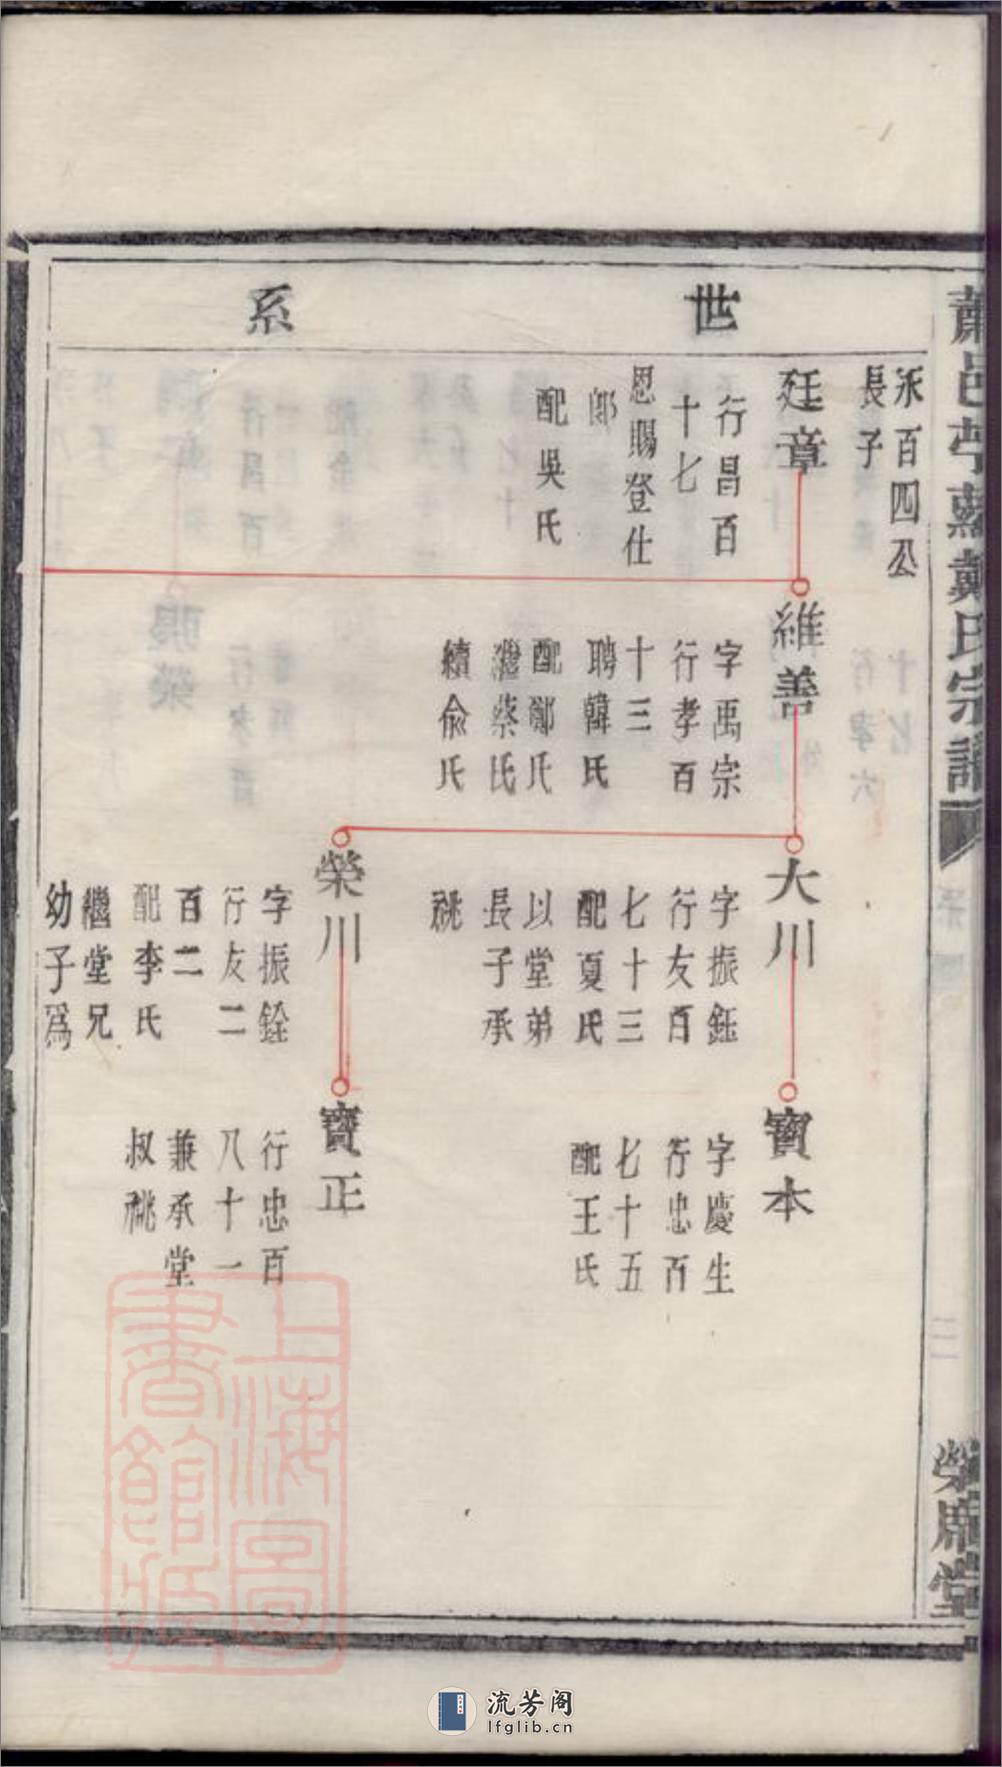 蕭邑苧蘿戴氏宗譜
榮席堂
世系
永百四公
長子
廷章
行昌百
十七
恩賜登仕
郎
配吳氏
維善
字禹宗
行孝百
十三
聘韓氏
配鄭氏
繼蔡氏
續俞氏
大川
字振鈺
行友百
七十三
配夏氏
以堂弟
長子承
祧
榮川
字振銓
行友二
百二
配李氏
繼堂兄
幼子爲
寶本
字慶生
行忠百
七十五
配王氏
寶正
行忠百
八十一
兼承堂
叔祧
上海圖
書館藏
流芳阁
lfglib.cn